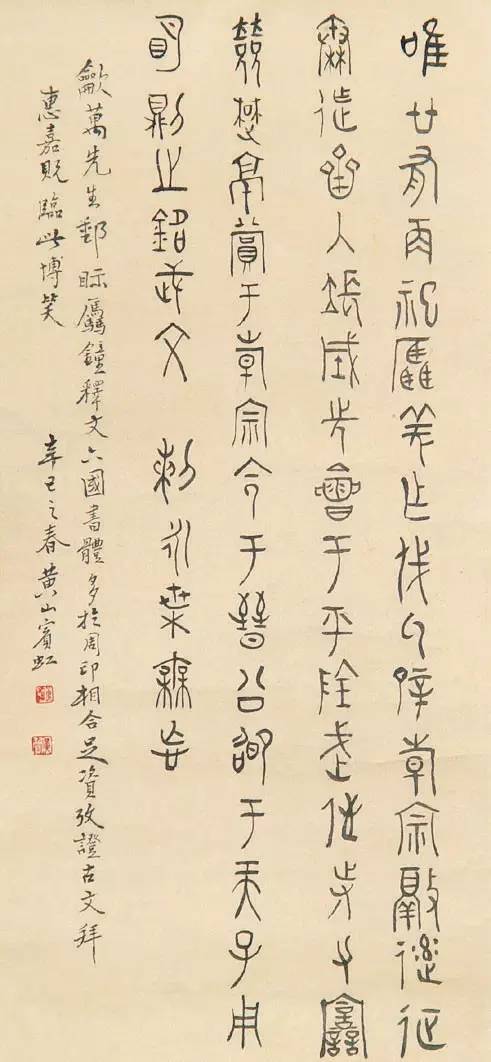 唯廿又再祀驫羌乍戎厥辟韓宗敲率征
秦迮齊入長城先會于平陰武侄寺力譶
敓楚京賞于韓宗令于晉公卲于天子用
明則之銘武文 剌永枼毋忘
歙萬先生郵眎驫鐘釋文六國書體多於周印相合足資攷證古文拜
惠嘉貺臨此博笑 辛巳之春黃山賓虹